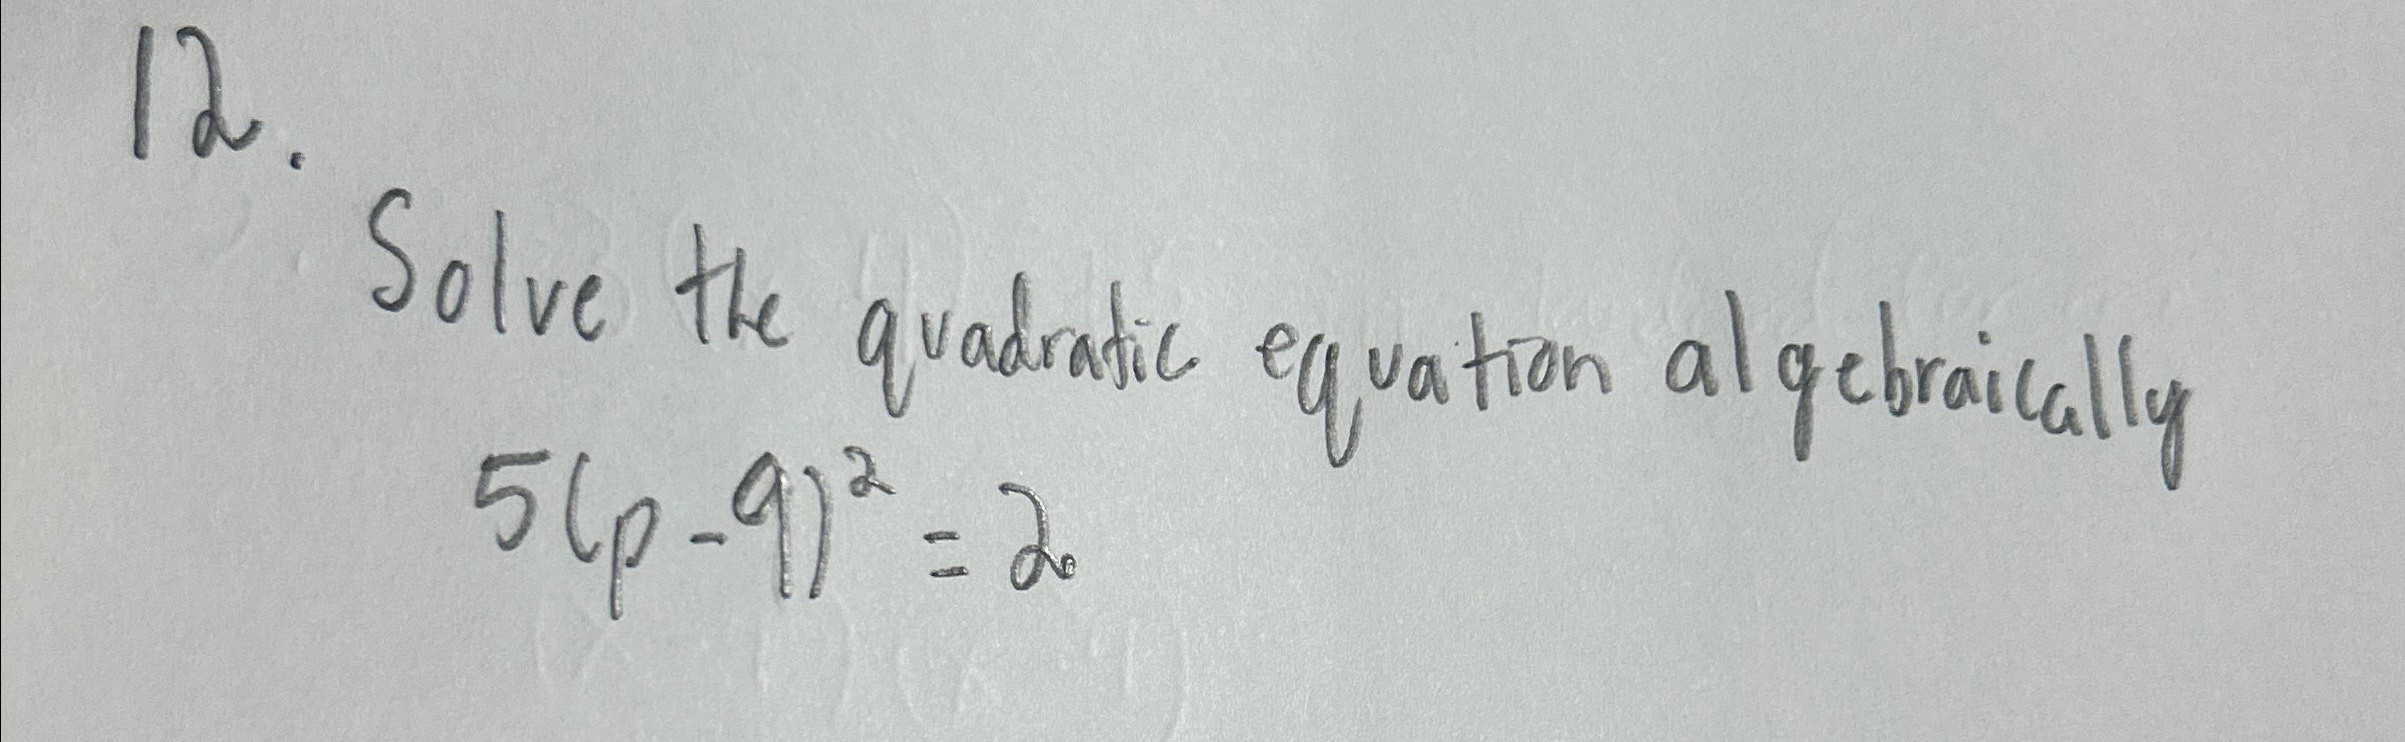 12.
Solve the quadratic equation algebraically
5(p-9)² = 2